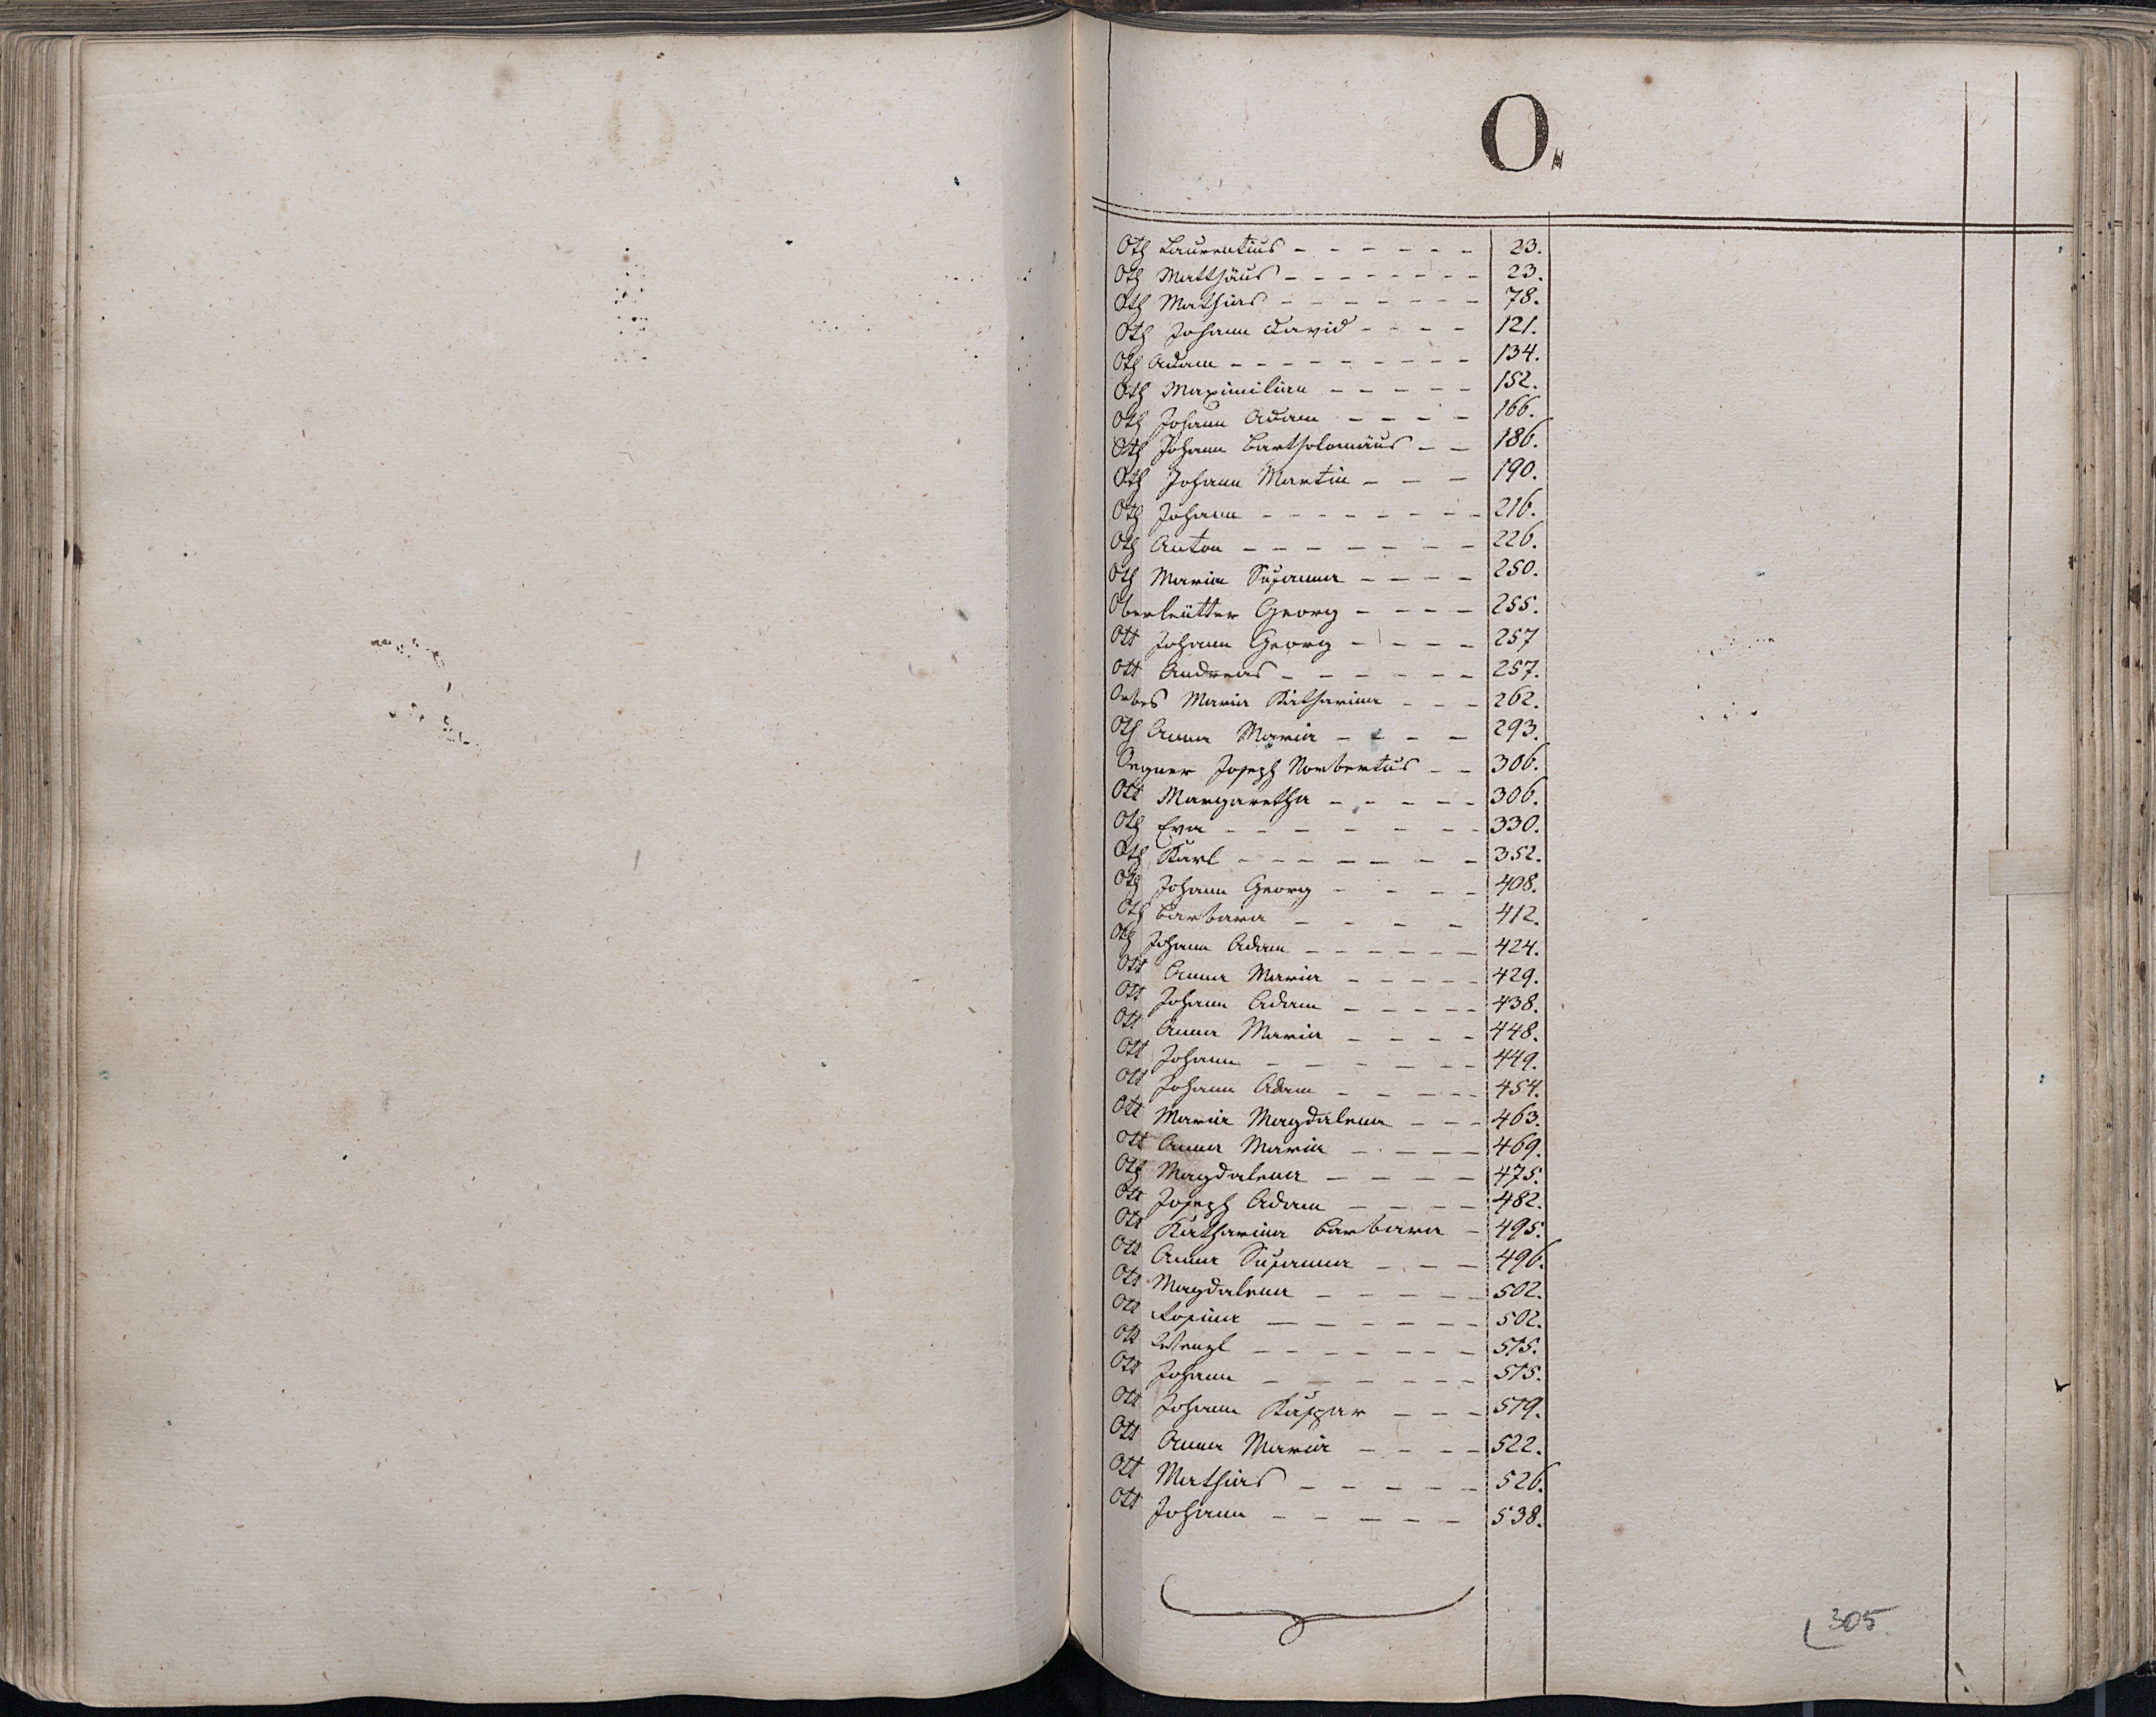 O.
Oth Laurentius - - - - - - 23.
Oth Matthäus - - - - - - - 23.
Oth Mathias - - - - - - - 78.
Oth Johann David - - - - 121.
Oth Adam - - - - - - - - - 134.
Oth Maximilian - - - - - 152.
Oth Johann Adam - - - - 166.
Oth Johann Bartholomäus - - 186.
Oth Johann Martin - - - 190.
Oth Johann - - - - - - - - 216.
Oth Anton - - - - - - - 226.
Oth Maria Susanna - - - - 250.
Oberleütter Georg - - - - 255.
Ott Johann Georg - - - - 257
Ott Andreas - - - - - - 257.
Orbes Maria Katharina - - - 262.
Oth Anna Maria - - - - 293.
Oegner Joseph Norbertus - - 306.
Ott Margaretha - - - - - 306.
Oth Eva - - - - - - - - 330.
Oth Karl - - - - - - - 352.
Oth Johann Georg - - - - 408.
Oth Barbara - - - - 412.
Oth Johann Adam - - - - - - 424.
Ott Anna Maria - - - - - 429.
Ott Johann Adam - - - - - 438.
Ott Anna Maria - - - - 448.
Ott Johann - - - - - - - 449.
Ott Johann Adam - - - - - 454.
Ott Maria Magdalena - - - 463.
Ott Anna Maria - - - - - 469.
Oth Magdalena - - - - - 475.
Ott Joseph Adam - - - - - 482.
Ott Katharina Barbara - 495.
Ott Anna Susanna - - - - 496.
Ott Magdalena - - - - - 502.
Ott Rosina - - - - - - - 502.
Ott Wenzl - - - - - - - 515.
Ott Johann - - - - - - - 515.
Ott Johann Kaspar - - - 519.
Ott Anna Maria - - - - 522.
Ott Mathias - - - - - 526.
Ott Johann - - - - - 538.
305